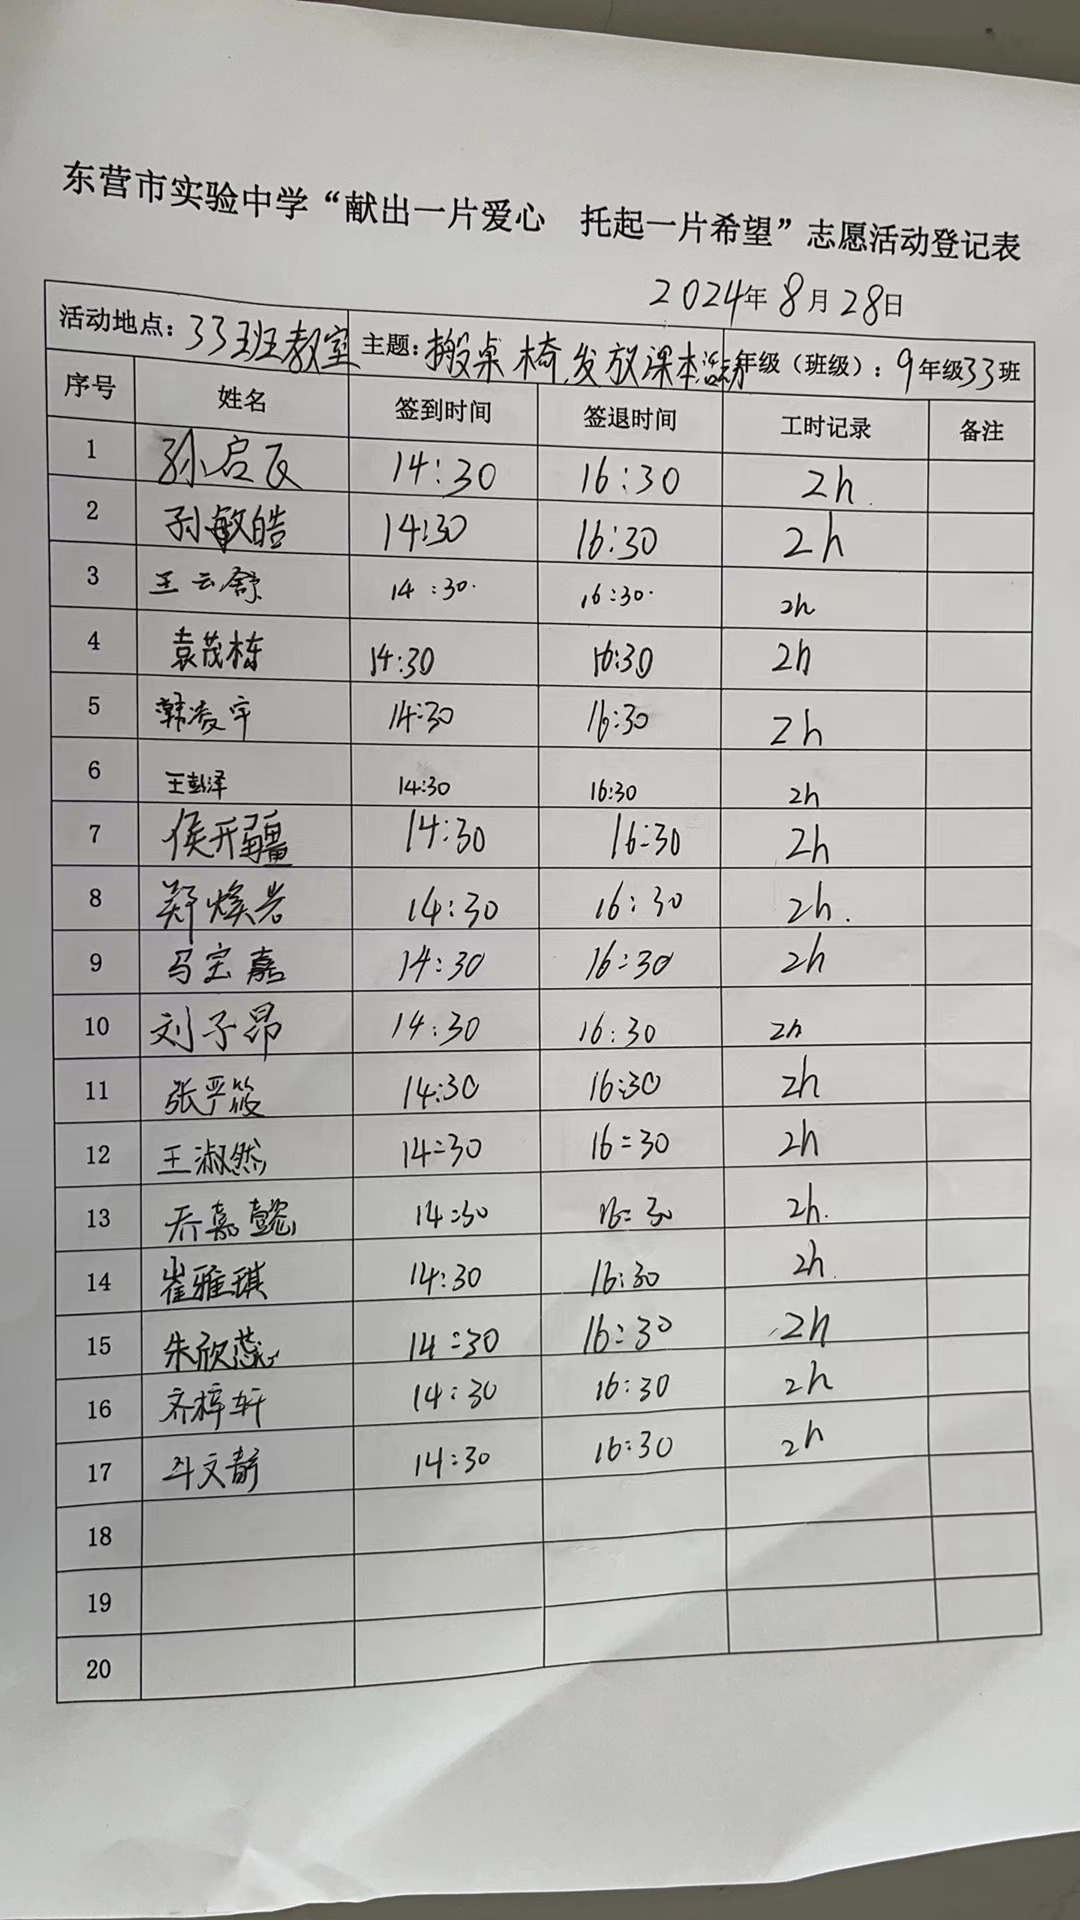 东营市实验中学“献出一片爱心 托起一片希望”志愿活动登记表
2024年8月28日
活动地点：33班教室 主题：搬桌椅,发放课本 年级（班级）：9年级33班
序号 姓名 签到时间 签退时间 工时记录 备注
1 孙启 14:30 16:30 2h
2 孙敏皓 14:30 16:30 2h
3 王云舒 14:30 16:30 2h
4 袁茂栋 14:30 16:30 2h
5 韩凌宇 14:30 16:30 2h
6 王彭泽 14:30 16:30 2h
7 侯开疆 14:30 16:30 2h
8 郑焕岩 14:30 16:30 2h.
9 马宝嘉 14:30 16:30 2h
10 刘子昂 14:30 16:30 2h
11 张严筱 14:30 16:30 2h
12 王淑然 14:30 16:30 2h
13 乔嘉懿 14:30 16:30 2h.
14 崔雅琪 14:30 16:30 2h.
15 朱欣蕊 14:30 16:30 2h
16 齐梓轩 14:30 16:30 2h
17 文静 14:30 16:30 2h
18
19
20